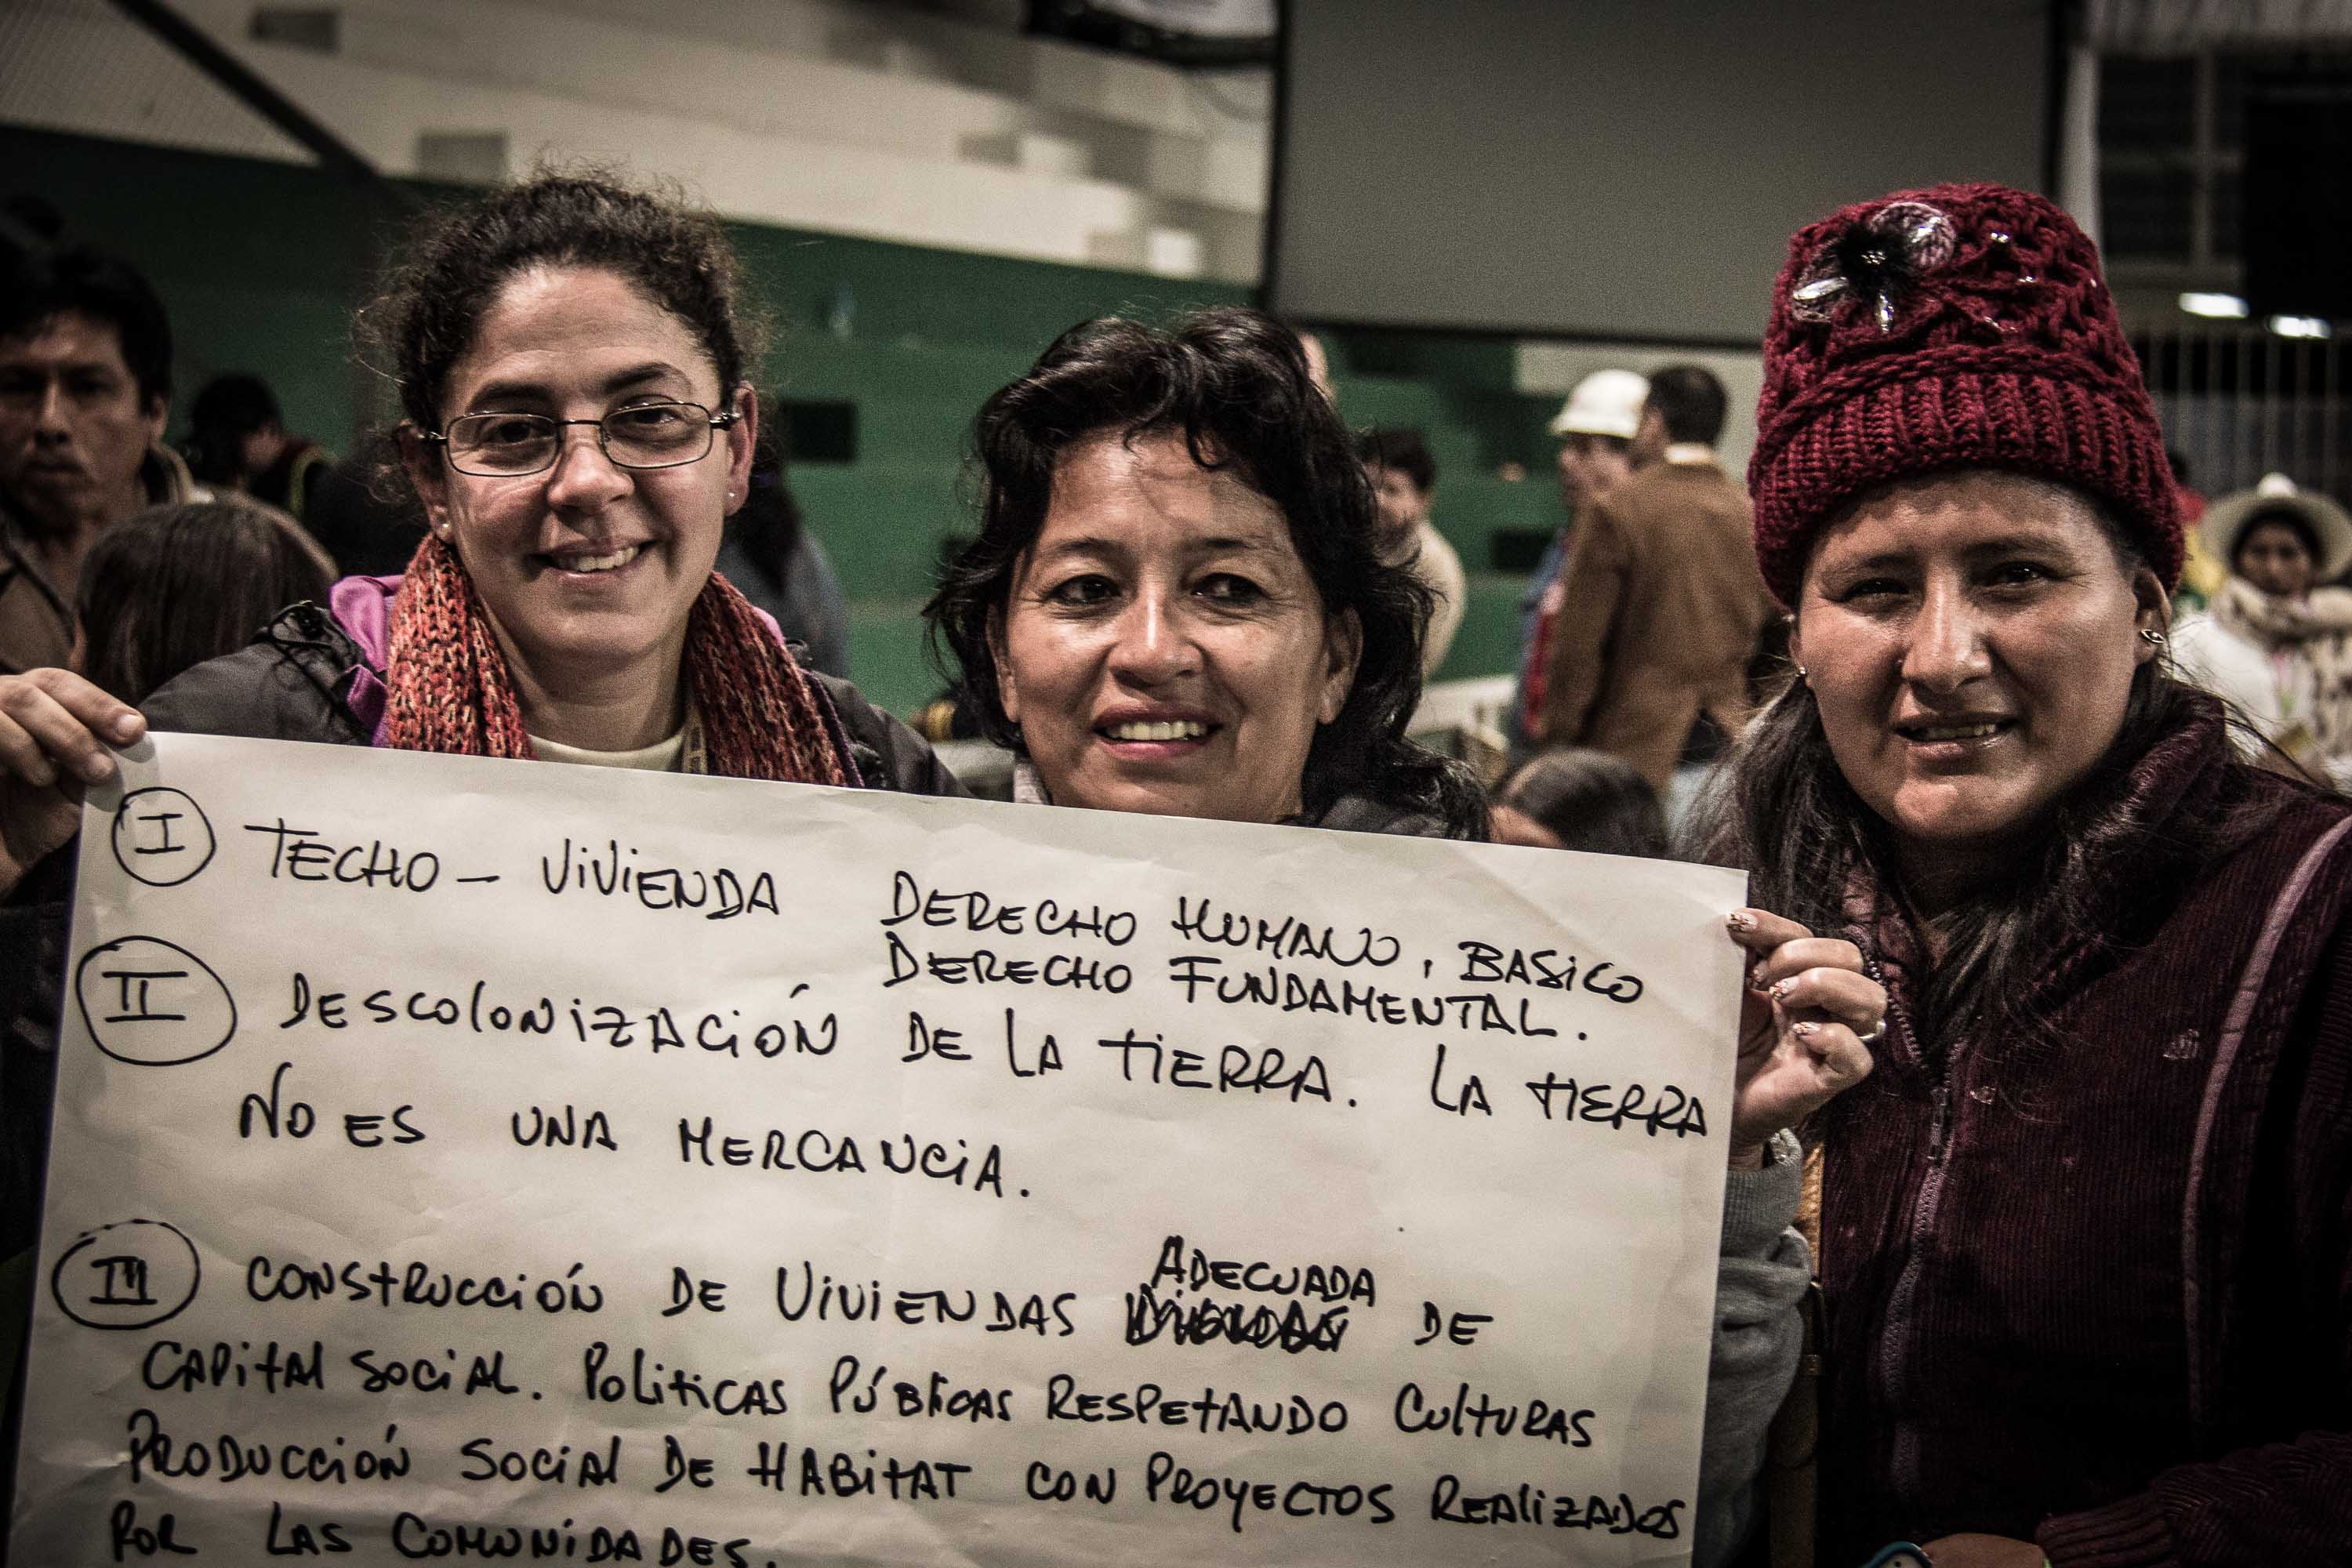 I TECHO - VIVIENDA DERECHO HUMANO, BASICO
DERECHO FUNDAMENTAL.
II DESCOLONIZACIÓN DE LA TIERRA. LA TIERRA
NO ES UNA MERCANCIA.
ADECUADA
III CONSTRUCCIÓN DE VIVIENDAS DE
CAPITAL SOCIAL. POLITICAS PÚBLICAS RESPETANDO CULTURAS
PRODUCCIÓN SOCIAL DE HABITAT CON PROYECTOS REALIZADOS
POR LAS COMUNIDADES.